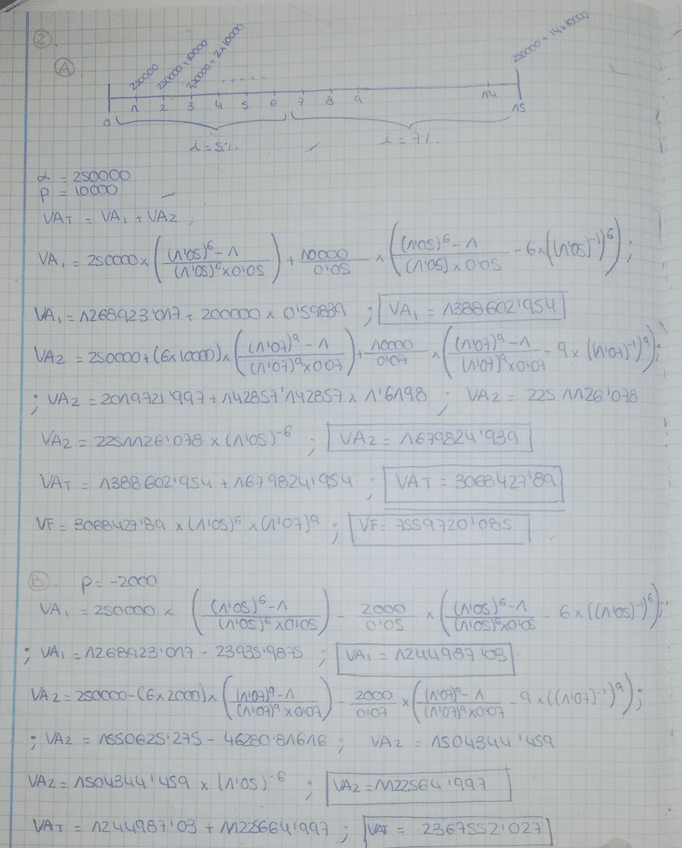 2.
A
250000 250000+10000 250000+2×10000 ..... 250000+14×10000
0 1 2 3 4 5 6 7 8 9 14 15
i=5% i=7%
α = 250000
P = 10000
VAT = VA1 + VA2
VA1 = 250000 × ((1'05)^6 - 1 / (1'05)^6 × 0'05) + 10000/0'05 × ((1'05)^6 - 1 / (1'05) × 0'05 - 6 × ((1'05)^-1)^6);
VA1 = 1268923'017 + 200000 × 0'59839 ; VA1 = 1388602'954
VA2 = 250000 + (6×10000) × ((1'07)^9 - 1 / (1'07)^9 × 0'07) + 10000/0'07 × ((1'07)^9 - 1 / (1'07)^9 × 0'07 - 9 × (1'07)^-1)^9);
; VA2 = 2019721'997 + 142857'142857 × 1'6198 ; VA2 = 2251126'078
VA2 = 2251126'078 × (1'05)^-6 ; VA2 = 1679824'939
VAT = 1388602'954 + 1679824'954 ; VAT = 3068427'89
VF = 3068427'89 × (1'05)^6 × (1'07)^9 ; VF = 7559720'085
B. P = -2000
VA1 = 250000 × ((1'05)^6 - 1 / (1'05)^6 × 0'05) - 2000/0'05 × ((1'05)^6 - 1 / (1'05)^6 × 0'05 - 6 × ((1'05)^-1)^6);
; VA1 = 1268923'017 - 23935'9875 ; VA1 = 1244987'03
VA2 = 250000 - (6×2000) × ((1'07)^9 - 1 / (1'07)^9 × 0'07) - 2000/0'07 × ((1'07)^9 - 1 / (1'07)^9 × 0'07 - 9 × ((1'07)^-1)^9);
; VA2 = 1550625'275 - 46280'81616 ; VA2 = 1504344'459
VA2 = 1504344'459 × (1'05)^-6 ; VA2 = 1122564'997
VAT = 1244987'03 + 1122564'997 ; VAT = 2367552'027